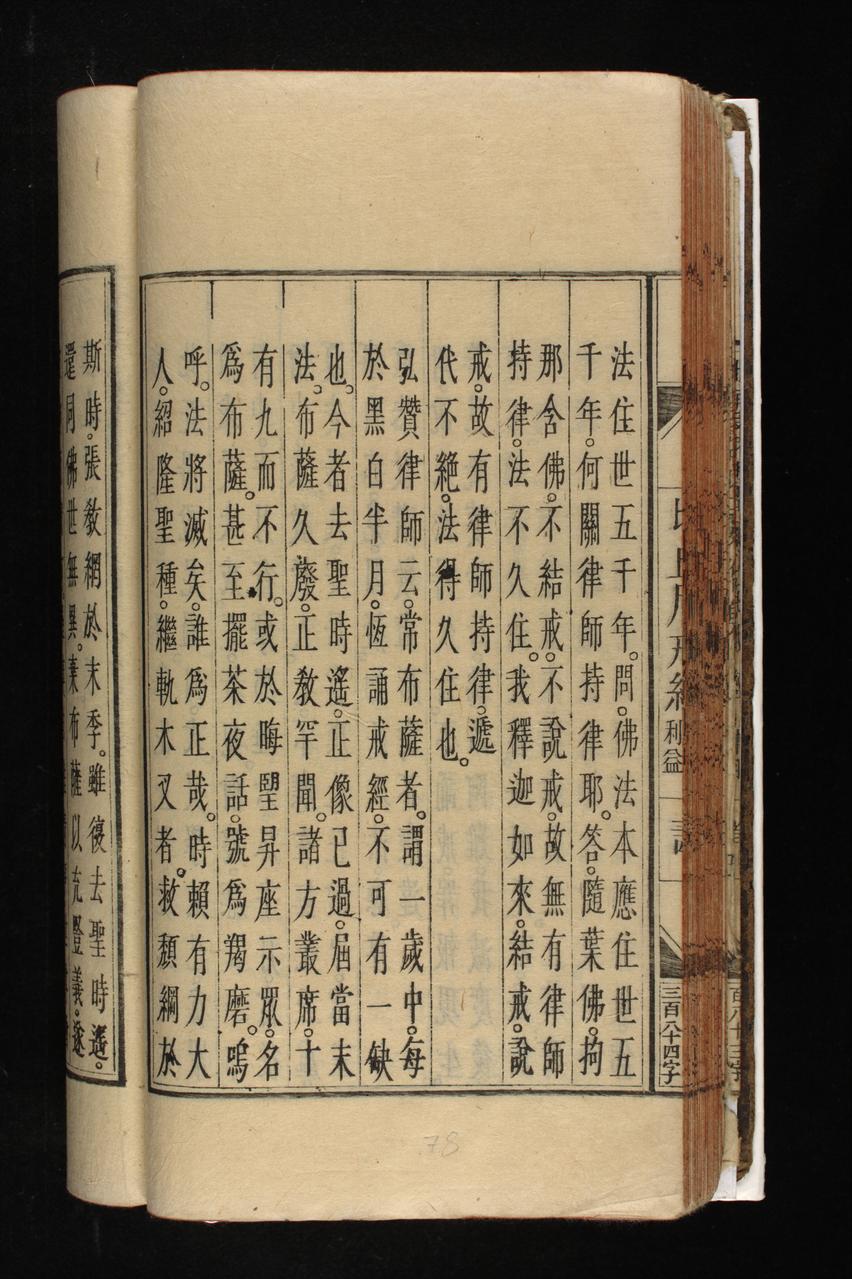 法住世五千年。問。佛法本應住世五
千年。何關律師持律耶。答。隨葉佛。拘
那含佛。不結戒。不說戒。故無有律師
持律。法不久住。我釋迦如來。結戒。說
戒。故有律師持律。遞
代不絕。法得久住也。
弘贊律師云。常布薩者。謂一歲中。每
於黑白半月。恆誦戒經。不可有一缺
也。今者去聖時遙。正像已過。屆當末
法。布薩久廢。正教罕聞。諸方叢席。十
有九而不行。或於晦朢昇座示眾。名
為布薩。甚至擺茶夜話。號為羯磨。嗚
呼。法將滅矣。誰為正哉。時賴有力大
人。紹隆聖種。繼軌木叉者。救頹綱於
利益
三百八十四字
斯時。張教網於末季。雖復去聖時遙。
還同佛世無異。棄布薩以充豎義。遂
78